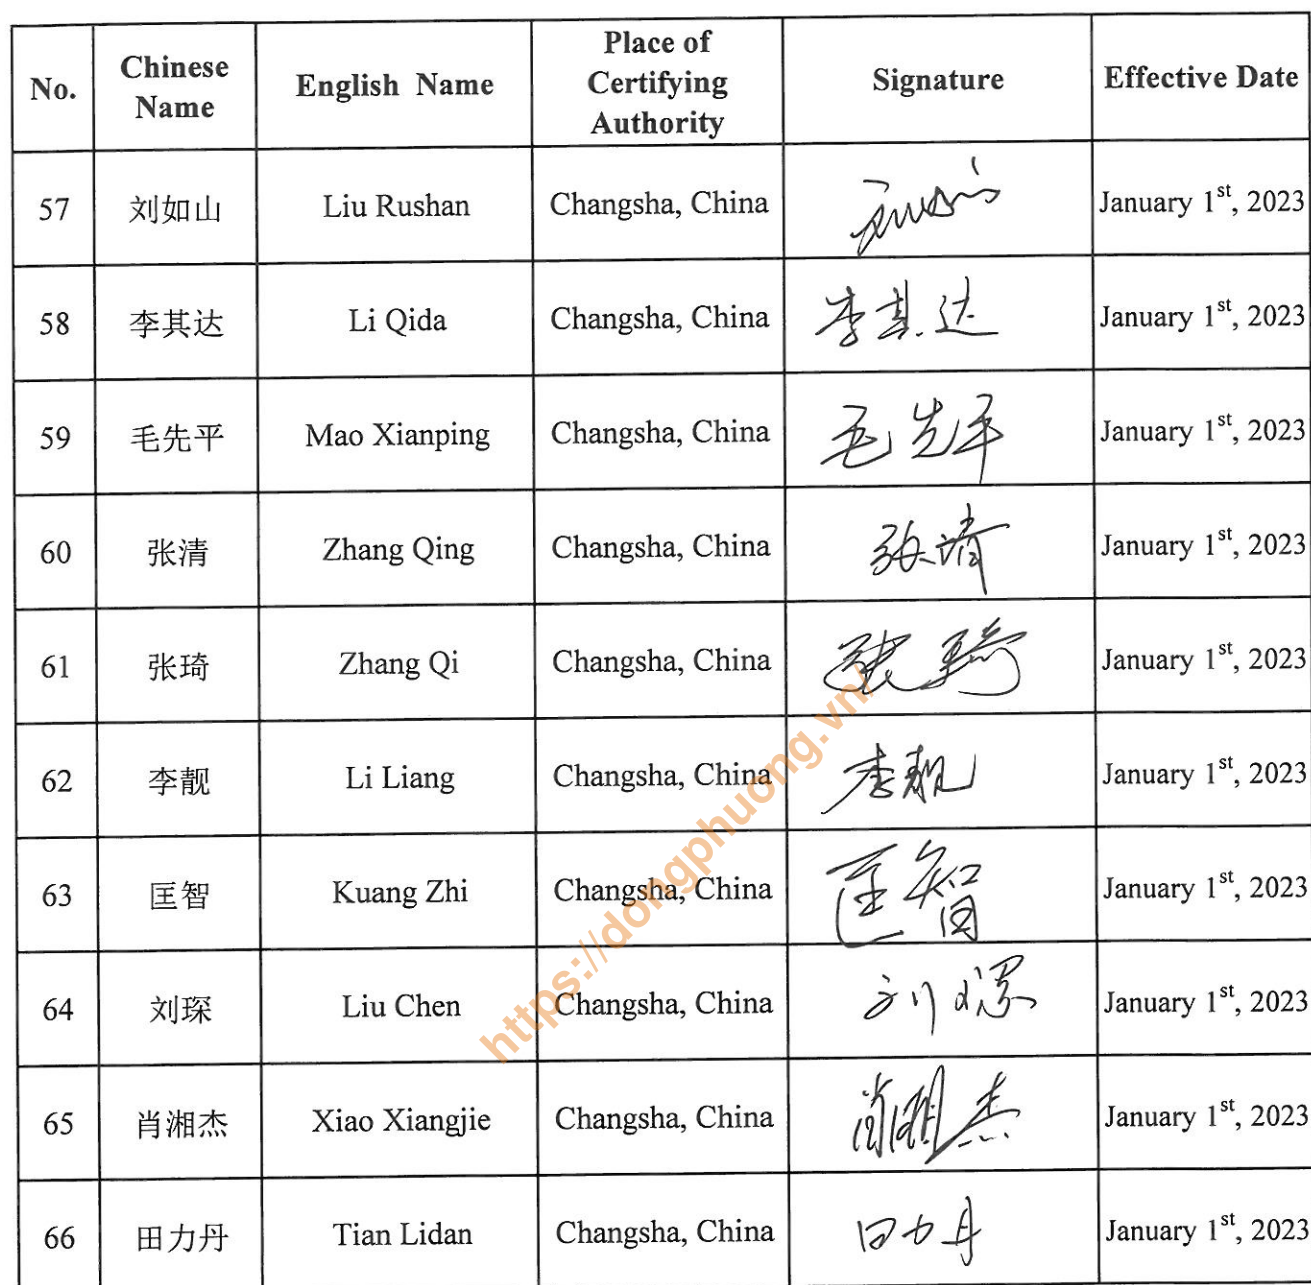 No. Chinese Name English Name Place of Certifying Authority Signature Effective Date
57 刘如山 Liu Rushan Changsha, China 刘如山 January 1st, 2023
58 李其达 Li Qida Changsha, China 李其达 January 1st, 2023
59 毛先平 Mao Xianping Changsha, China 毛先平 January 1st, 2023
60 张清 Zhang Qing Changsha, China 张清 January 1st, 2023
61 张琦 Zhang Qi Changsha, China 张琦 January 1st, 2023
62 李靓 Li Liang Changsha, China 李靓 January 1st, 2023
63 匡智 Kuang Zhi Changsha, China 匡智 January 1st, 2023
64 刘琛 Liu Chen Changsha, China 刘琛 January 1st, 2023
65 肖湘杰 Xiao Xiangjie Changsha, China 肖湘杰 January 1st, 2023
66 田力丹 Tian Lidan Changsha, China 田力丹 January 1st, 2023
https://dongphuong.vn/